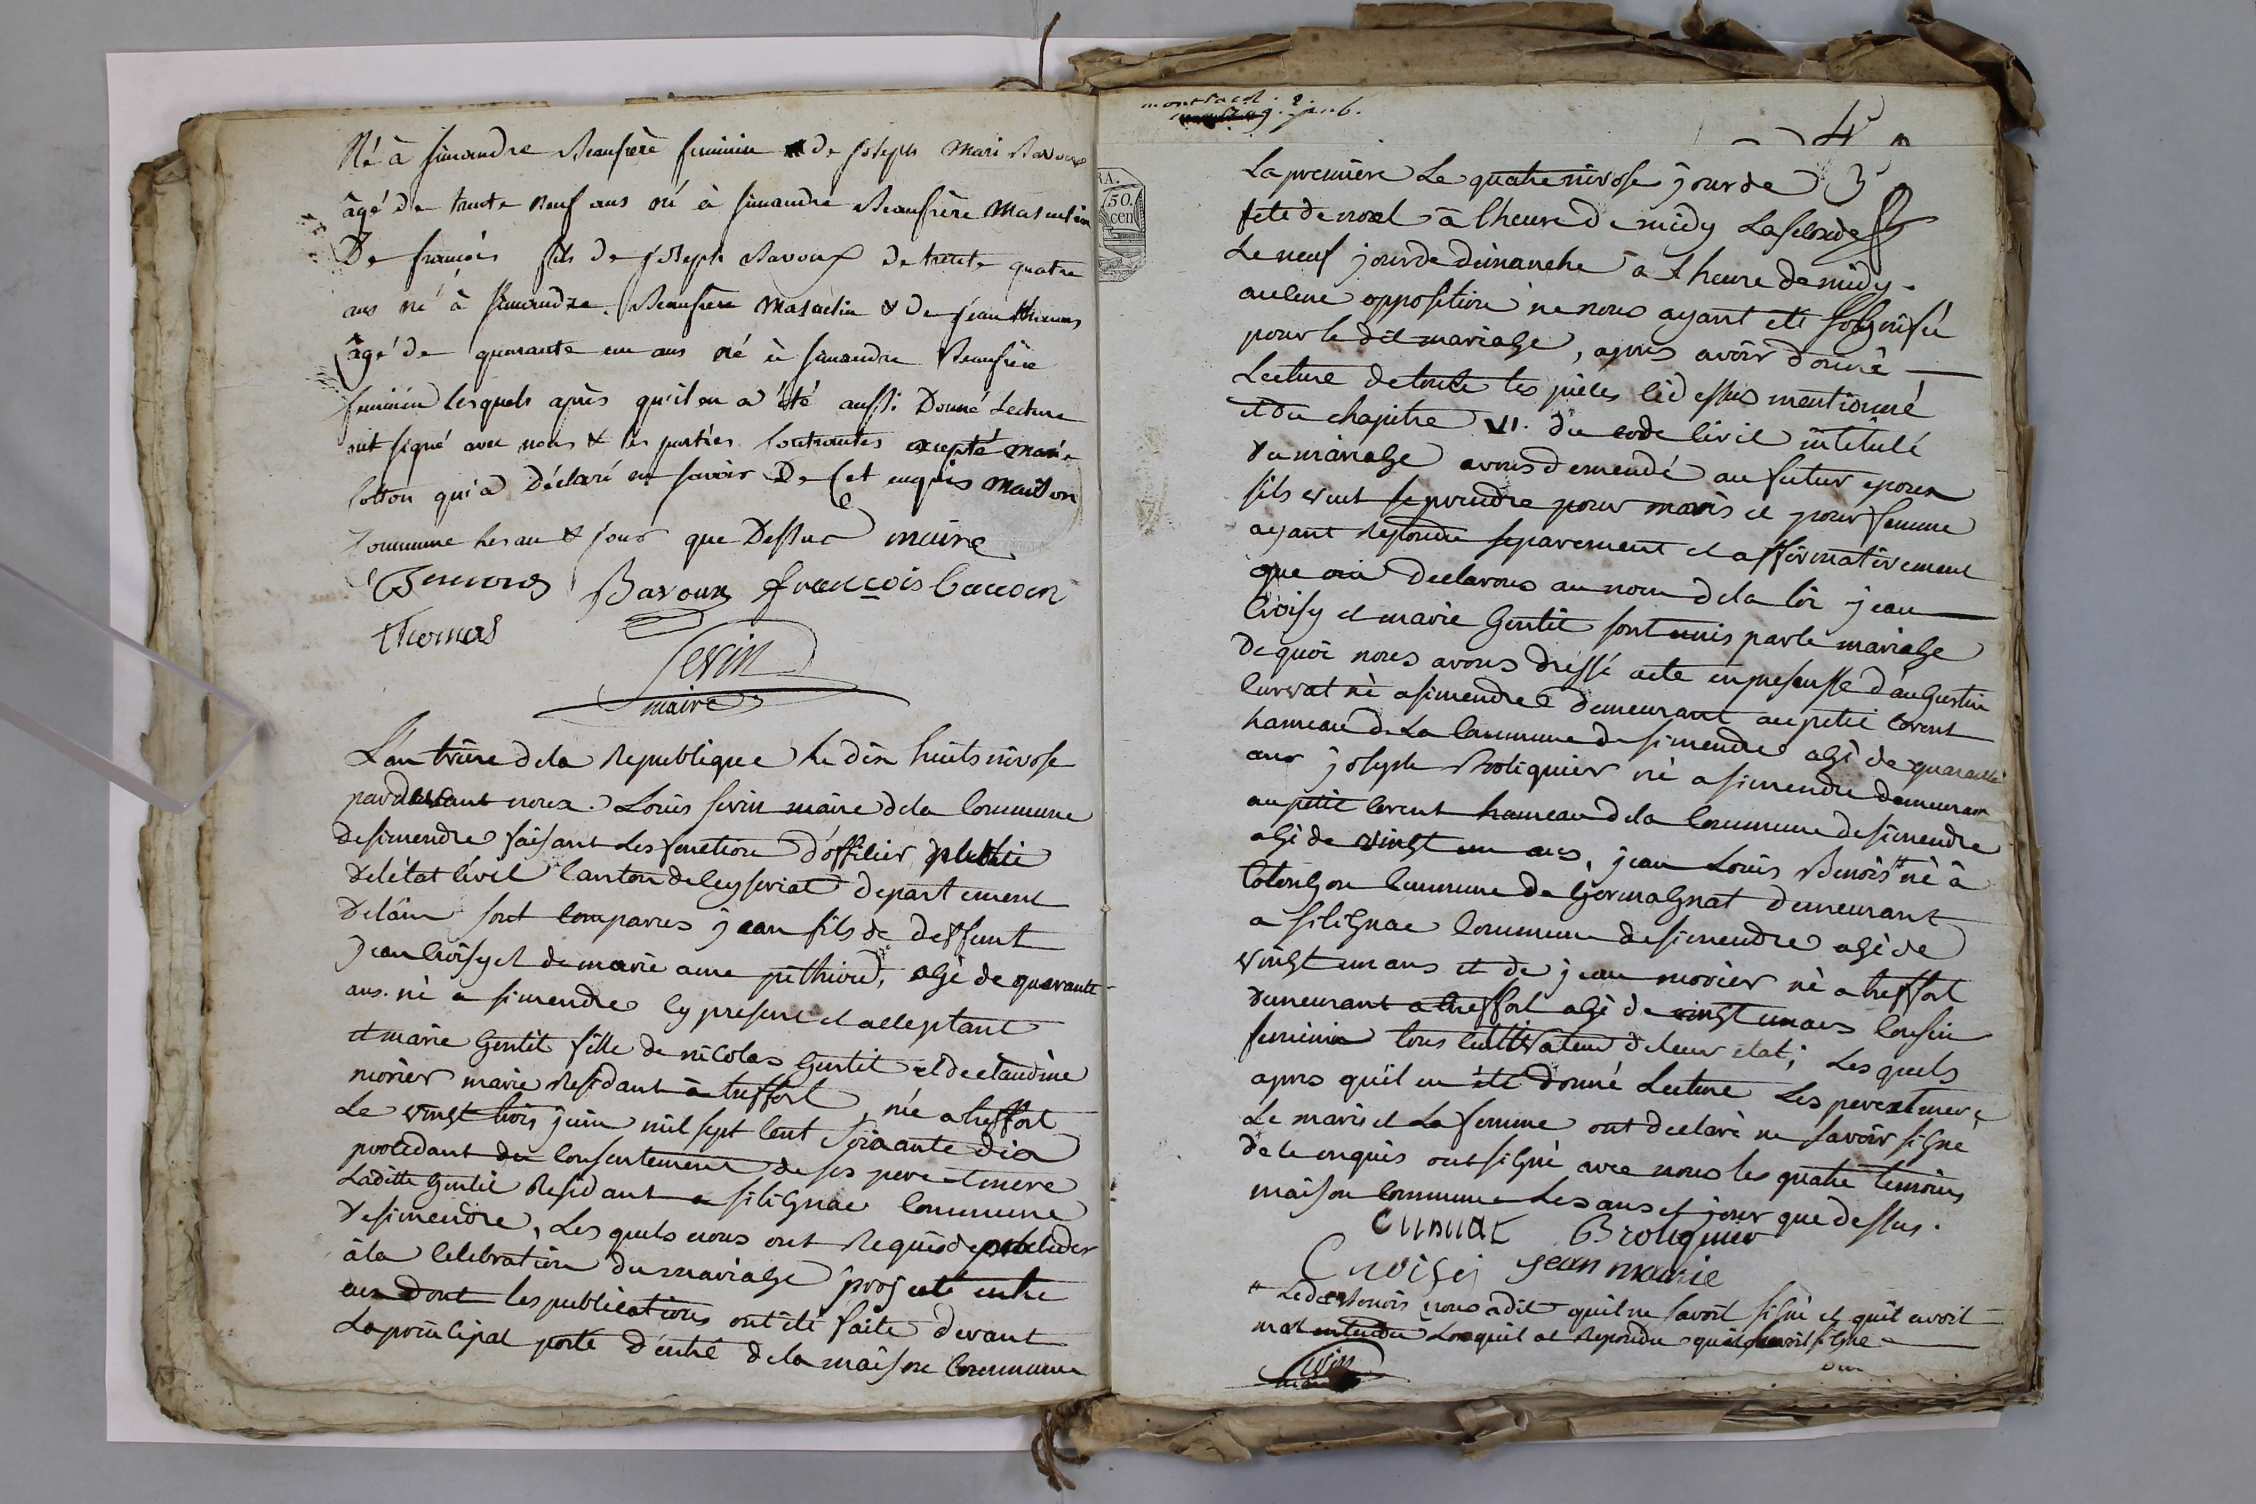 Né à simandre Beaufrère feminin & de joseph mari Ravoux
âgé de trente neuf ans né à simandre Beaufrère masculin
De francois fils de joseph Ravoux de trente quatre
ans né à simandre Beaufrère masculin & de jean thomas
âgé de quarante un ans né à simandre Beaufrère
feminin lesquels après qu'il en a été aussi Donné Lecture
ont signé avec nous & les parties Contractantes excepté marie
Cotton qui a Déclaré ne savoir De Cet enquis maison
Commune les an & jour que Dessus
Ravoux francois
thomas
Sevin
maire
L'an treize de la Republique le dix huits nivose
pardevant nous Louis sevin maire de la Commune
de simendre faisant les fonction d'officier public
de l'état civil Canton de Ceyseriat departement
de l'ain sont comparus jean fils de deffunt
jean Croisy et de marie anne pithiou, agé de quarante
ans né a simendre cy present et acceptant
et marie Gentit fille de nicolas Gentit et de claudine
morier marie Residant a treffort, née a treffort
Le vingt trois juin mil sept cent soixante dix
procedant du consentement de ses pere et mere
Laditte Gentit Residant a silignac Commune
de simendre, Les quels nous ont Requis de proceder
à la celebration du mariage projeté entre
eux dont les publications ont été faite devant
La principal porte d'entré de la maison Commune
RA.
50.
cen
4
La premiere Le quatre nivose jour de
fete de noel à l'heure de midy La seconde
Le neuf jour de dimanche a l'heure de midy.
aucune opposition ne nous ayant ete signifié
pour le dit mariage, apres avoir donné
Lecture de toute les pieces cidessus mentionné
et du chapitre VI. du code civil intitulé
du mariage avons demendé au futur epoux
sils veut se prendre pour maris et pour femme
ayant Repondu separement et affirmativement
que oui declarons au nom de la loi jean
Croisy et marie Gentit sont unis par le mariage
De quoi nous avons dressé acte en presensse d'augustin
Curvat né a simendre demeurant au petit Corent
hameau de La Commune de simendre agé de quarante
ans joseph Broliquier né a simendre demeurant
au petit Corent hameau de la Commune de simendre
agé de vingt un ans, jean Louis Benois né à
Cotongon Commune de Germagnat demeurant
a silignac Commune de simendre agé de
vingt un ans et de jean morier né a treffort
demeurant a treffort agé de vingt un ans Cousin
feminin tous cultivateur de leur etat; Les quels
apres qu'il en été donné Lecture Les pere et mere
Le maris et La femme ont declaré ne savoir signé
de ce enquis ont signé avec nous les quatre temoins
maison Commune Les ans et jour que dessus.
Curvat Broliquier
Croisy jean marie
Le dit Benois nous a dit qu'il ne savoit signé et qu'il avoit
mal entendu Lorsquil at Repondu qu'il savoit signé
Sevin